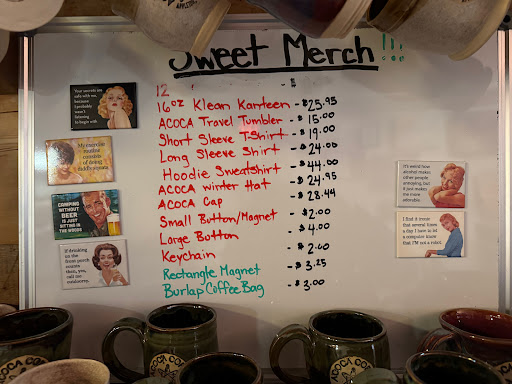 Sweet Merch!!!
12 - $
16oz Klean Kanteen - $25.95
ACOCA Travel Tumbler - $15.00
Short Sleeve TShirt - $19.00
Long Sleeve Shirt - $24.00
Hoodie Sweatshirt - $44.00
ACOCA winter Hat - $24.95
ACOCA Cap - $28.44
Small Button/Magnet - $2.00
Large Button - $4.00
Keychain - $2.00
Rectangle Magnet - $3.25
Burlap Coffee Bag - $3.00
Your secrets are
safe with me,
because I
probably
wasn't
listening to
begin with
My exercise
routine
consists
of doing
diddly squats.
CAMPING
WITHOUT
BEER
IS JUST
SITTING IN
THE WOODS
If drinking on
the front porch
counts
then, yes,
call me
outdoorsy.
It's weird how
alcohol makes
other people
annoying, but
it just
makes me
more
adorable.
I find it ironic
that several times
a day I have to tell
a computer
that I'M not a robot.
ACOCA CO
ACOCA CO
ACOCA CO